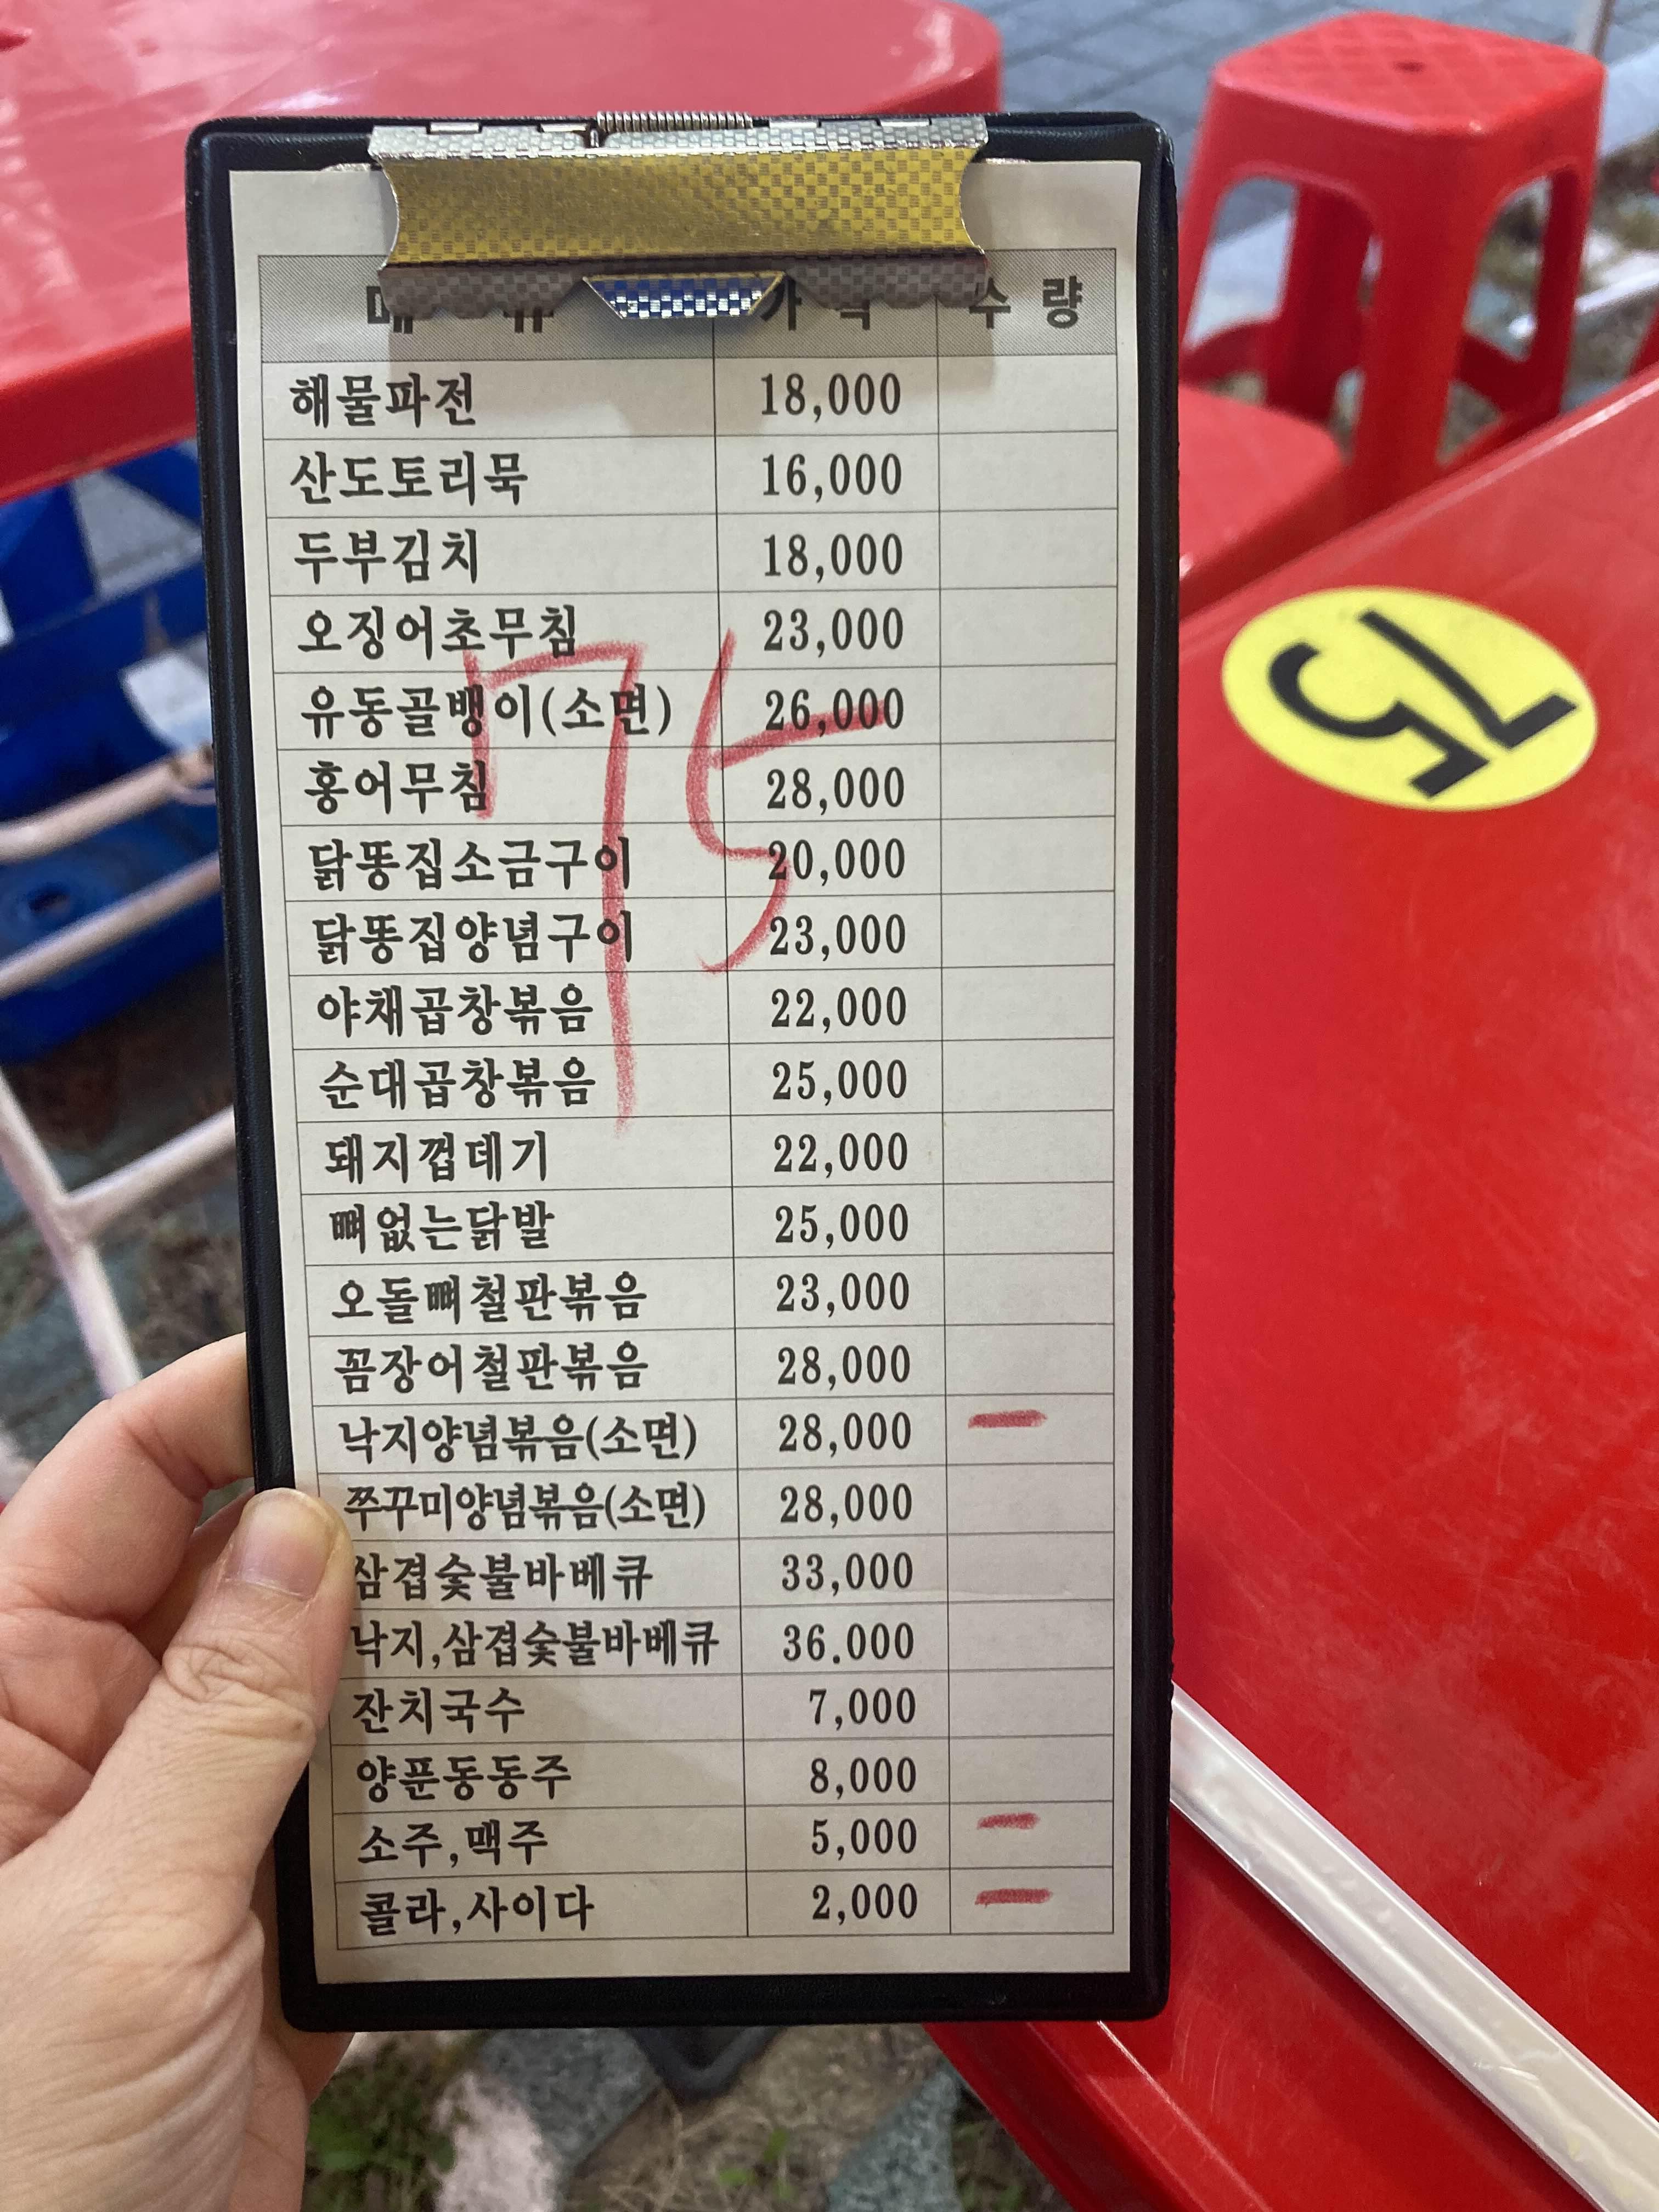 메 뉴 가 격 수 량
해물파전 18,000
산도토리묵 16,000
두부김치 18,000
오징어초무침 23,000
유동골뱅이(소면) 26,000
홍어무침 28,000
닭똥집소금구이 20,000
닭똥집양념구이 23,000
야채곱창볶음 22,000
순대곱창볶음 25,000
돼지껍데기 22,000
뼈없는닭발 25,000
오돌뼈철판볶음 23,000
꼼장어철판볶음 28,000
낙지양념볶음(소면) 28,000 一
쭈꾸미양념볶음(소면) 28,000
삼겹숯불바베큐 33,000
낙지,삼겹숯불바베큐 36.000
잔치국수 7,000
양푼동동주 8,000
소주,맥주 5,000 一
콜라,사이다 2,000 一
75
75